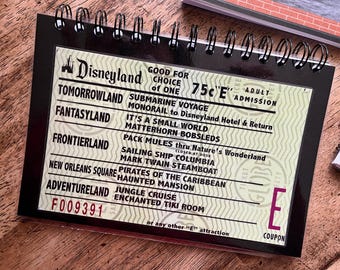 Disneyland GOOD FOR CHOICE of ONE 75c "E" ADULT ADMISSION
TOMORROWLAND SUBMARINE VOYAGE
MONORAIL to Disneyland Hotel & Return
FANTASYLAND IT'S A SMALL WORLD
MATTERHORN BOBSLEDS
FRONTIERLAND PACK MULES thru Nature's Wonderland
SAILING SHIP COLUMBIA
MARK TWAIN STEAMBOAT
NEW ORLEANS SQUARE PIRATES OF THE CARIBBEAN
HAUNTED MANSION
ADVENTURELAND JUNGLE CRUISE
ENCHANTED TIKI ROOM
F009391
or any other "E" attraction
E
COUPON